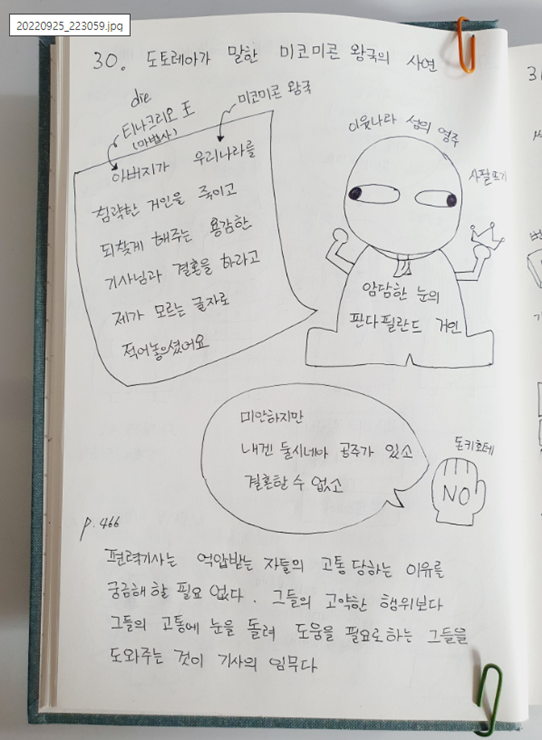 20220925_223059.jpg
30. 도토레아가 말한 미코미콘 왕국의 사연
die
티나크리오 포
(마법사)
미코미콘 왕국
아버지가 우리나라를
침략한 거인을 죽이고
되찾게 해주는 용감한
기사님과 결혼을 하라고
제가 모르는 글자로
적어놓으셨어요
이웃나라 섬의 영주
사팔뜨기
암담한 눈의
판다필란드 거인
미안하지만
내겐 둘시네아 공주가 있소
결혼할 수 없소
돈키호테
NO
p.466
편력기사는 억압받는 자들의 고통 당하는 이유를
궁금해 할 필요 없다. 그들의 고약한 행위보다
그들의 고통에 눈을 돌려 도움을 필요로 하는 그들을
도와주는 것이 기사의 임무다
3